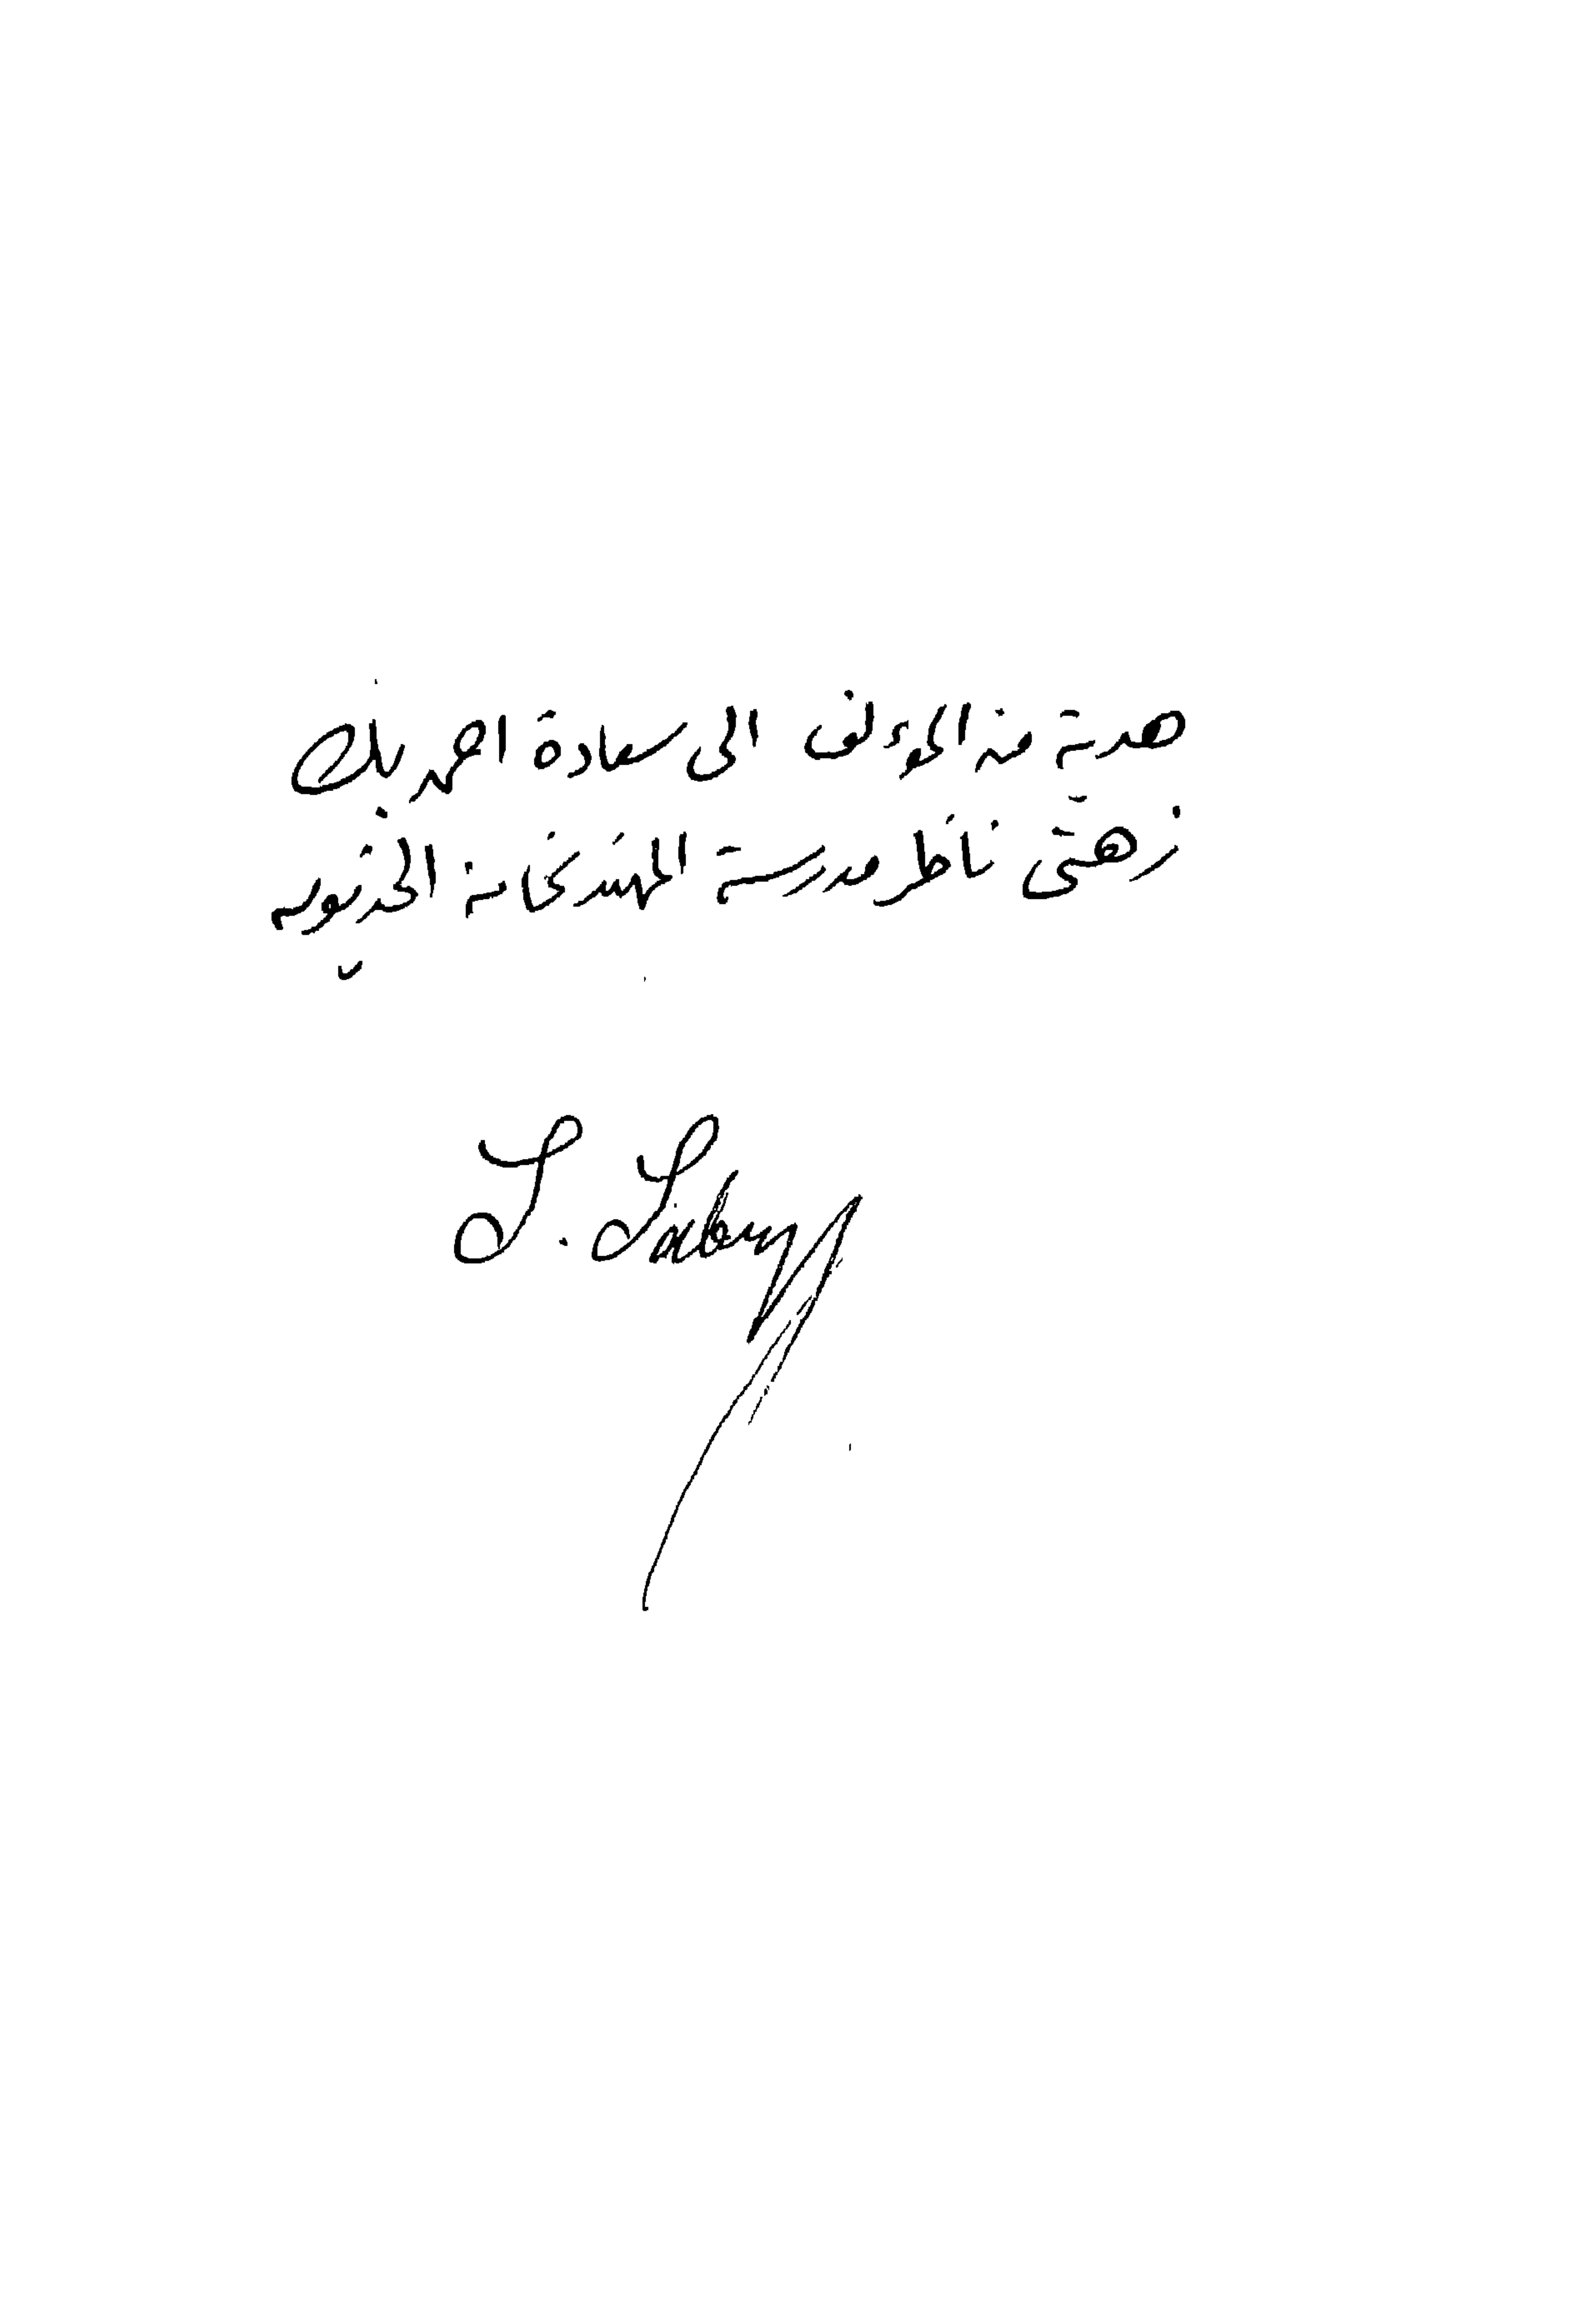 هدية من المؤلف الى سعادة احمد بك
ناظر مدرسة المهندسخانة الخديوية
S. S